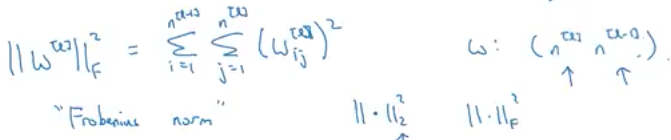 ||w^{[l]}||_F^2 = \sum_{i=1}^{n^{[l-1]}} \sum_{j=1}^{n^{[l]}} (w_{ij}^{[l]})^2    w: (n^{[l]} n^{[l-1]}).
"Frobenius norm"    ||·||_2^2    ||·||_F^2